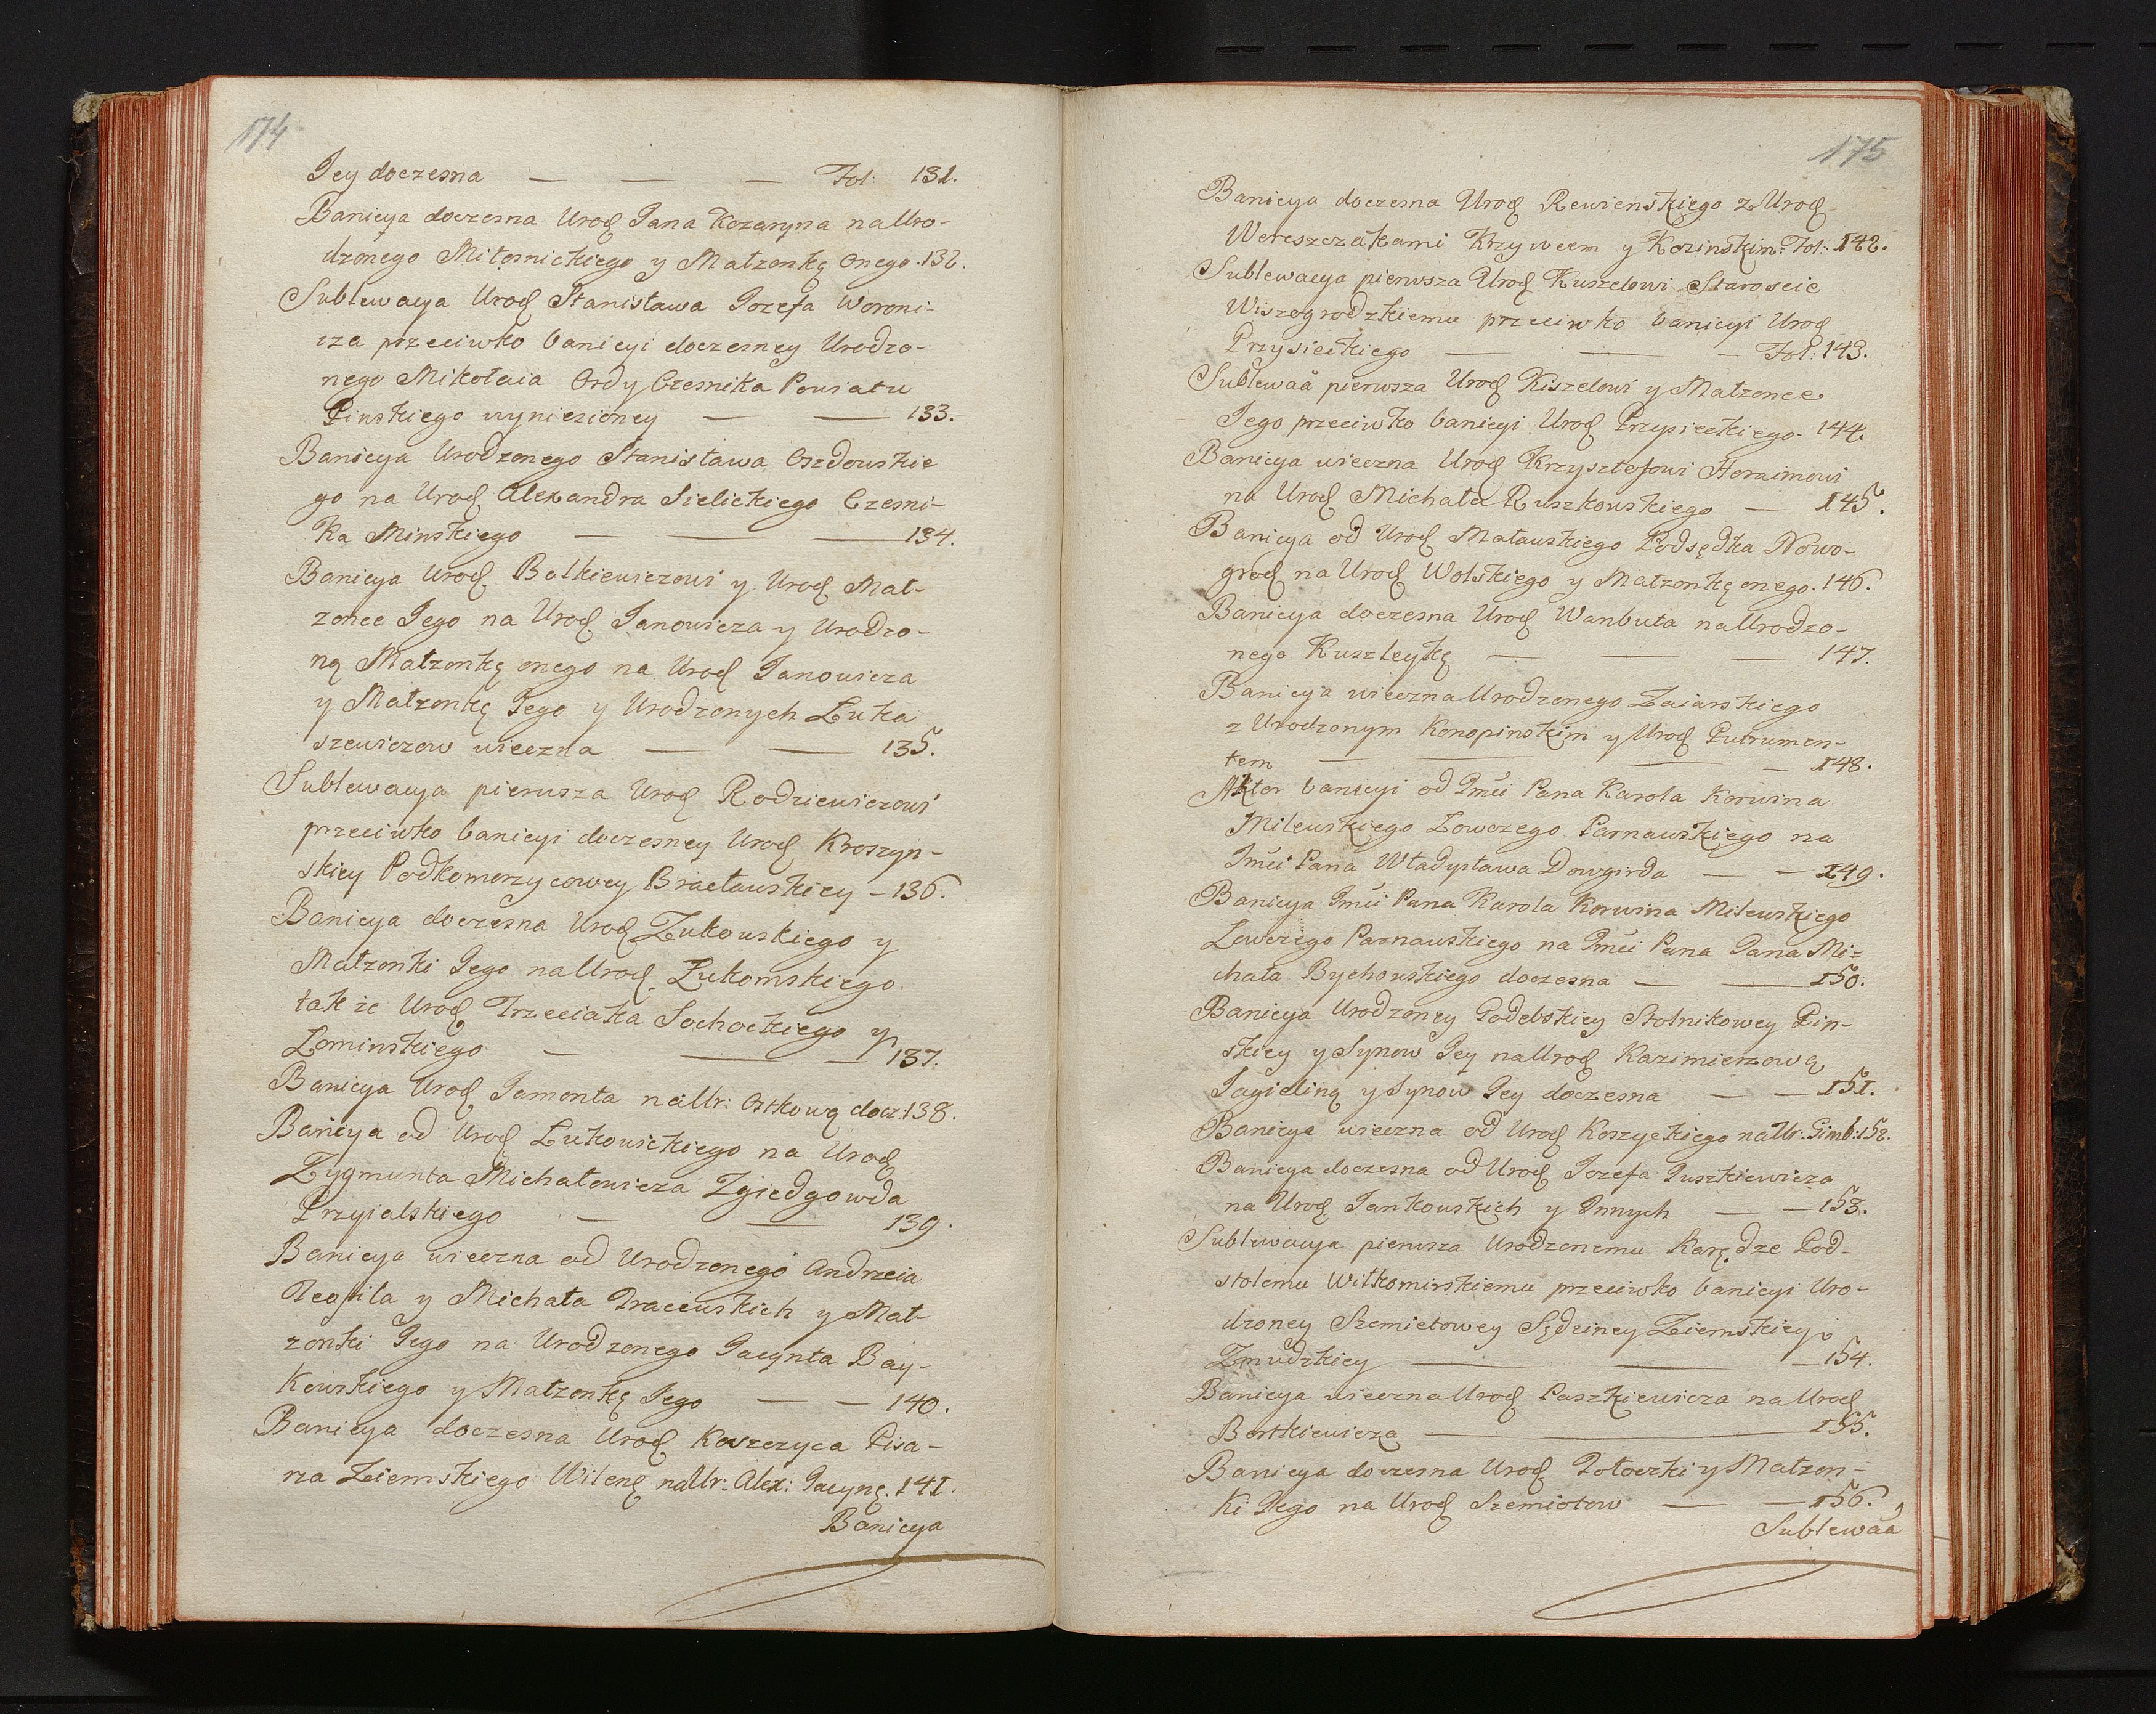 174
Jey doczesna — — — Fol: 131.
Banicya doczesna Urod Jana Kozaryna na Uro-
dzonego Miłosnickiego y Małzonkę onego. 132.
Sublewacya Urod Stanisława Jozefa Woroni-
cza przeciwko banicyi doczesney Urodzo-
nego Mikołaia Ordy Czesnika Powiatu
Pinskiego wyniesioney — — 133.
Banicya Urodzonego Stanisława Ozdowskie
go na Urod Alexandra Sielickiego Czesni-
ka Minskiego — — — 134.
Banicya Urod Bołkiewiczowi y Urod Mał-
zonce Jego na Urod Janowicza y Urodzo-
ną Małzonkę onego na Urod Janowicza
y Małzonkę Jego y Urodzonych Łuka
szewiczow wieczna — — 135.
Sublewacya pierwsza Urod Rodziewiczowi
przeciwko banicyi doczesney Urod Kroszyn-
skiey Podkomorzycowey Bracławskiey – 136.
Banicya doczesna Urod Zukowskiego y
Małzonki Jego na Urod Łukomskiego
tak ze Urod Trzeciaka Sochockiego y
Łominskiego — — — 137.
Banicya Urod Jamonta na Ur: Ostkową docz: 138.
Banicya od Urod Łukowickiego na Urod
Zygmunta Michałowicza Zgiedgowda
Przyialskiego — — 139.
Banicya wieczna od Urodzonego Andrzeia
Teofila y Michała Dracewskich y Mał-
zonki Jego na Urodzonego Jacynta Bay-
kowskiego y Małzonkę Jego — — 140.
Banicya doczesna Urod Koszczyca Pisa-
rza Ziemskiego Wilen na Ur: Alex: Jacynę. 141.
Banicya
175
Banicya doczesna Urod Rewienskiego z Urod
Wereszczakami Krzywcem y Kozinskim: Fol: 142.
Sublewacya pierwsza Urod Kuszelowi Staroscie
Wiszogrodzkiemu przeciwko banicyi Urod
Przysieckiego — — — Fol: 143.
Sublewaã pierwsza Urod Kiszelowi y Małzonce
Jego przeciwko banicyi Urod Przysieckiego. 144.
Banicya wieczna Urod Krzysztofowi Horaimowi
na Urod Michała Ruszkowskiego — 145.
Banicya od Urod Maławskiego Podsędka Nowo-
grod na Urod Wolskiego y Małzonkę onego. 146.
Banicya doczesna Urod Wanbuta na Urodzo-
nego Kuszleykę — — — 147.
Banicya wieczna Urodzonego Zaiarskiego
z Urodzonym Konopinskim y Urod Putrumen-
tem — — — — 148.
Aktor banicyi od Jmci Pana Karola Korwina
Milewskiego Łowczego Parnawskiego na
Jmci Pana Władysława Dowgirda — — 149.
Banicya Jmci Pana Karola Korwina Milewskiego
Łowczego Parnawskiego na Jmci Pana Jana Mi=
chała Bychowskiego doczesna — — 150.
Banicya Urodzoney Godebskiey Stolnikowey Pin-
skiey y Synow Jey na Urod Kazimierzową
Jagieliną y Synow Jey doczesna — — 151.
Banicya wieczna od Urod Koszyckiego na Ur: Gimb: 152.
Banicya doczesna od Urod Jozefa Juszkiewicza
na Urod Jankowskich y Innych — — 153.
Sublewacya pierwsza Urodzonemu Karędze Pod-
stolemu Wiłkomirskiemu przeciwko banicyi Uro-
dzoney Szemietowey Sędziney Ziemskiey
Zmudzkiey — — — 154.
Banicya wieczna Urod Paszkiewicza na Urod
Bortkiewicza — 155.
Banicya doczesna Urod Tołoczki y Małzon-
ki Jego na Urod Szemiotow — — 156.
Sublewaã